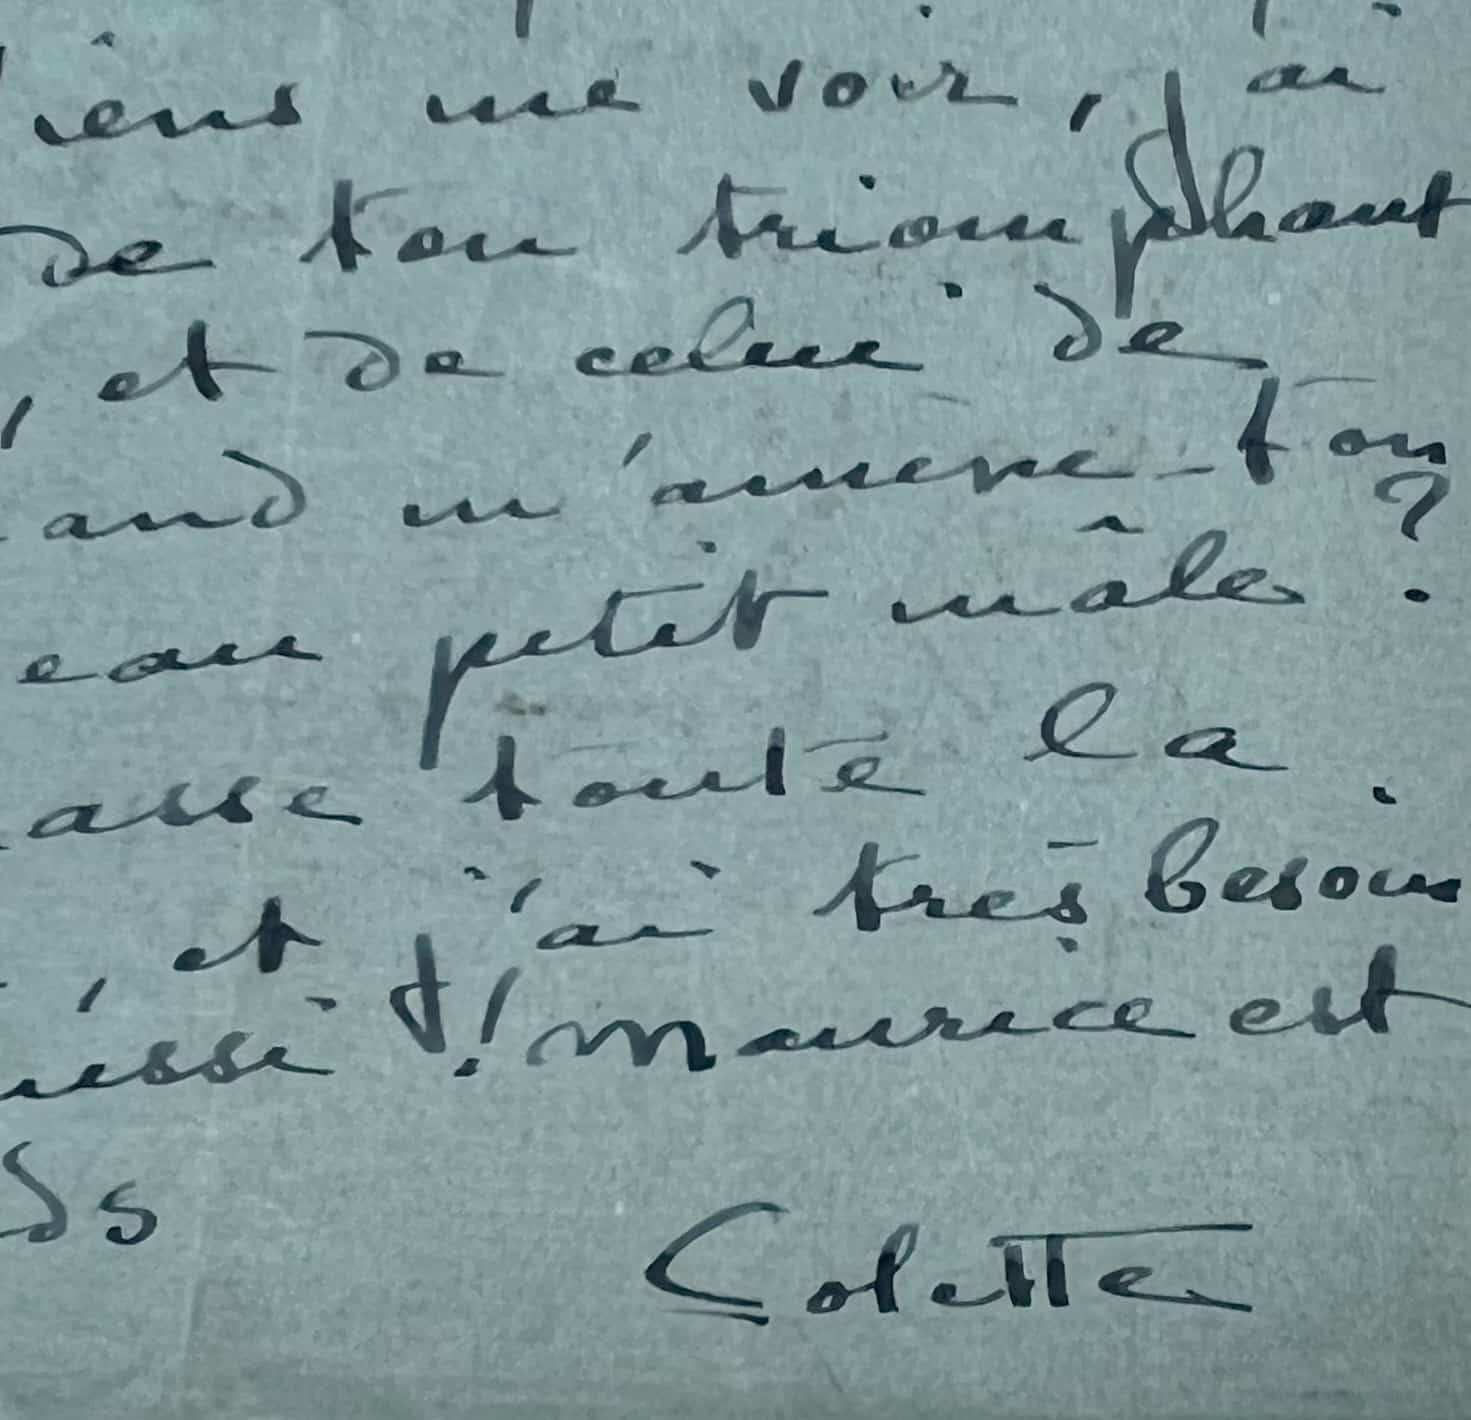 iens me voir, j'ai
de ton triomphant
, et de celui de
and m'amène-t'on
eau petit mâle ?
asse toute la
, et j'ai très besoin
ussi ! Maurice est
ds
Colette